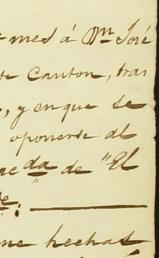 mes á Dn José
te Canton, tras
, y en que se
oponerse al
da de "El
hechas